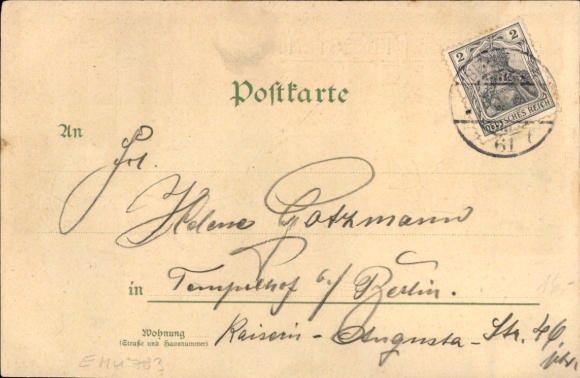 2 2
DEUTSCHES REICH
61
Postkarte
An
Frl.
Helene Gotzmann
in Tempelhof b/ Berlin.
Wohnung
(Straße und Hausnummer)
Kaiserin-Augusta-Str. 46
ptr.
16.-